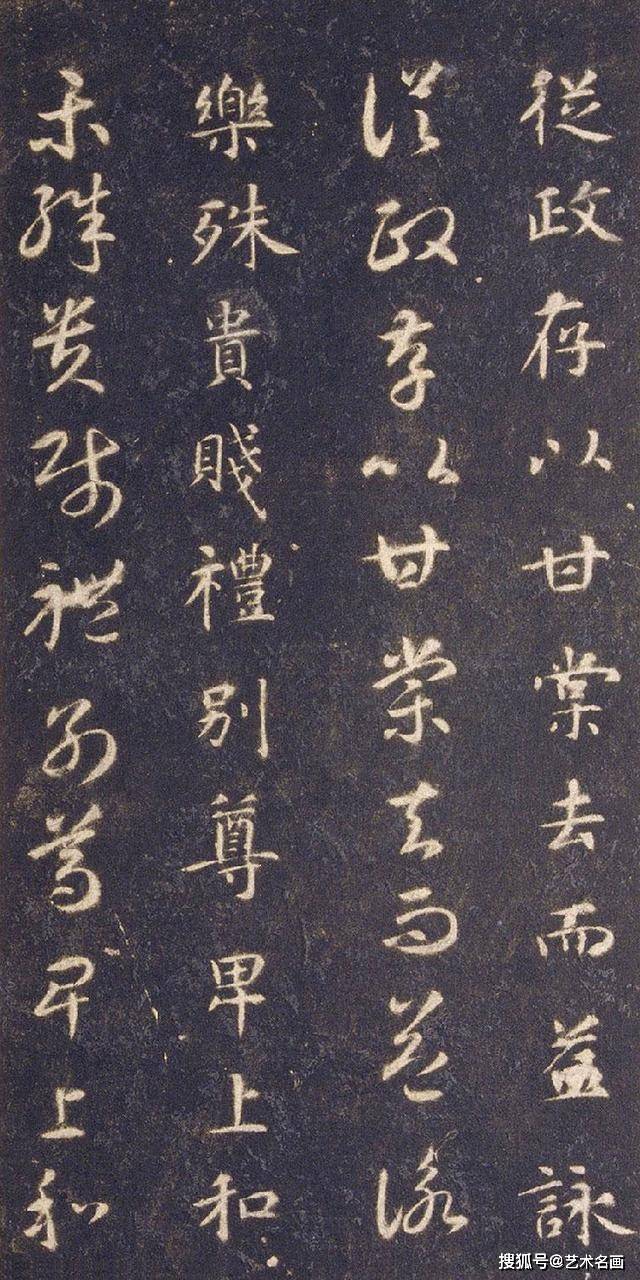 從政存以甘棠去而益詠
從政存以甘棠去而益詠
樂殊貴賤禮別尊卑上和
樂殊貴賤禮別尊卑上和
搜狐号@艺术名画